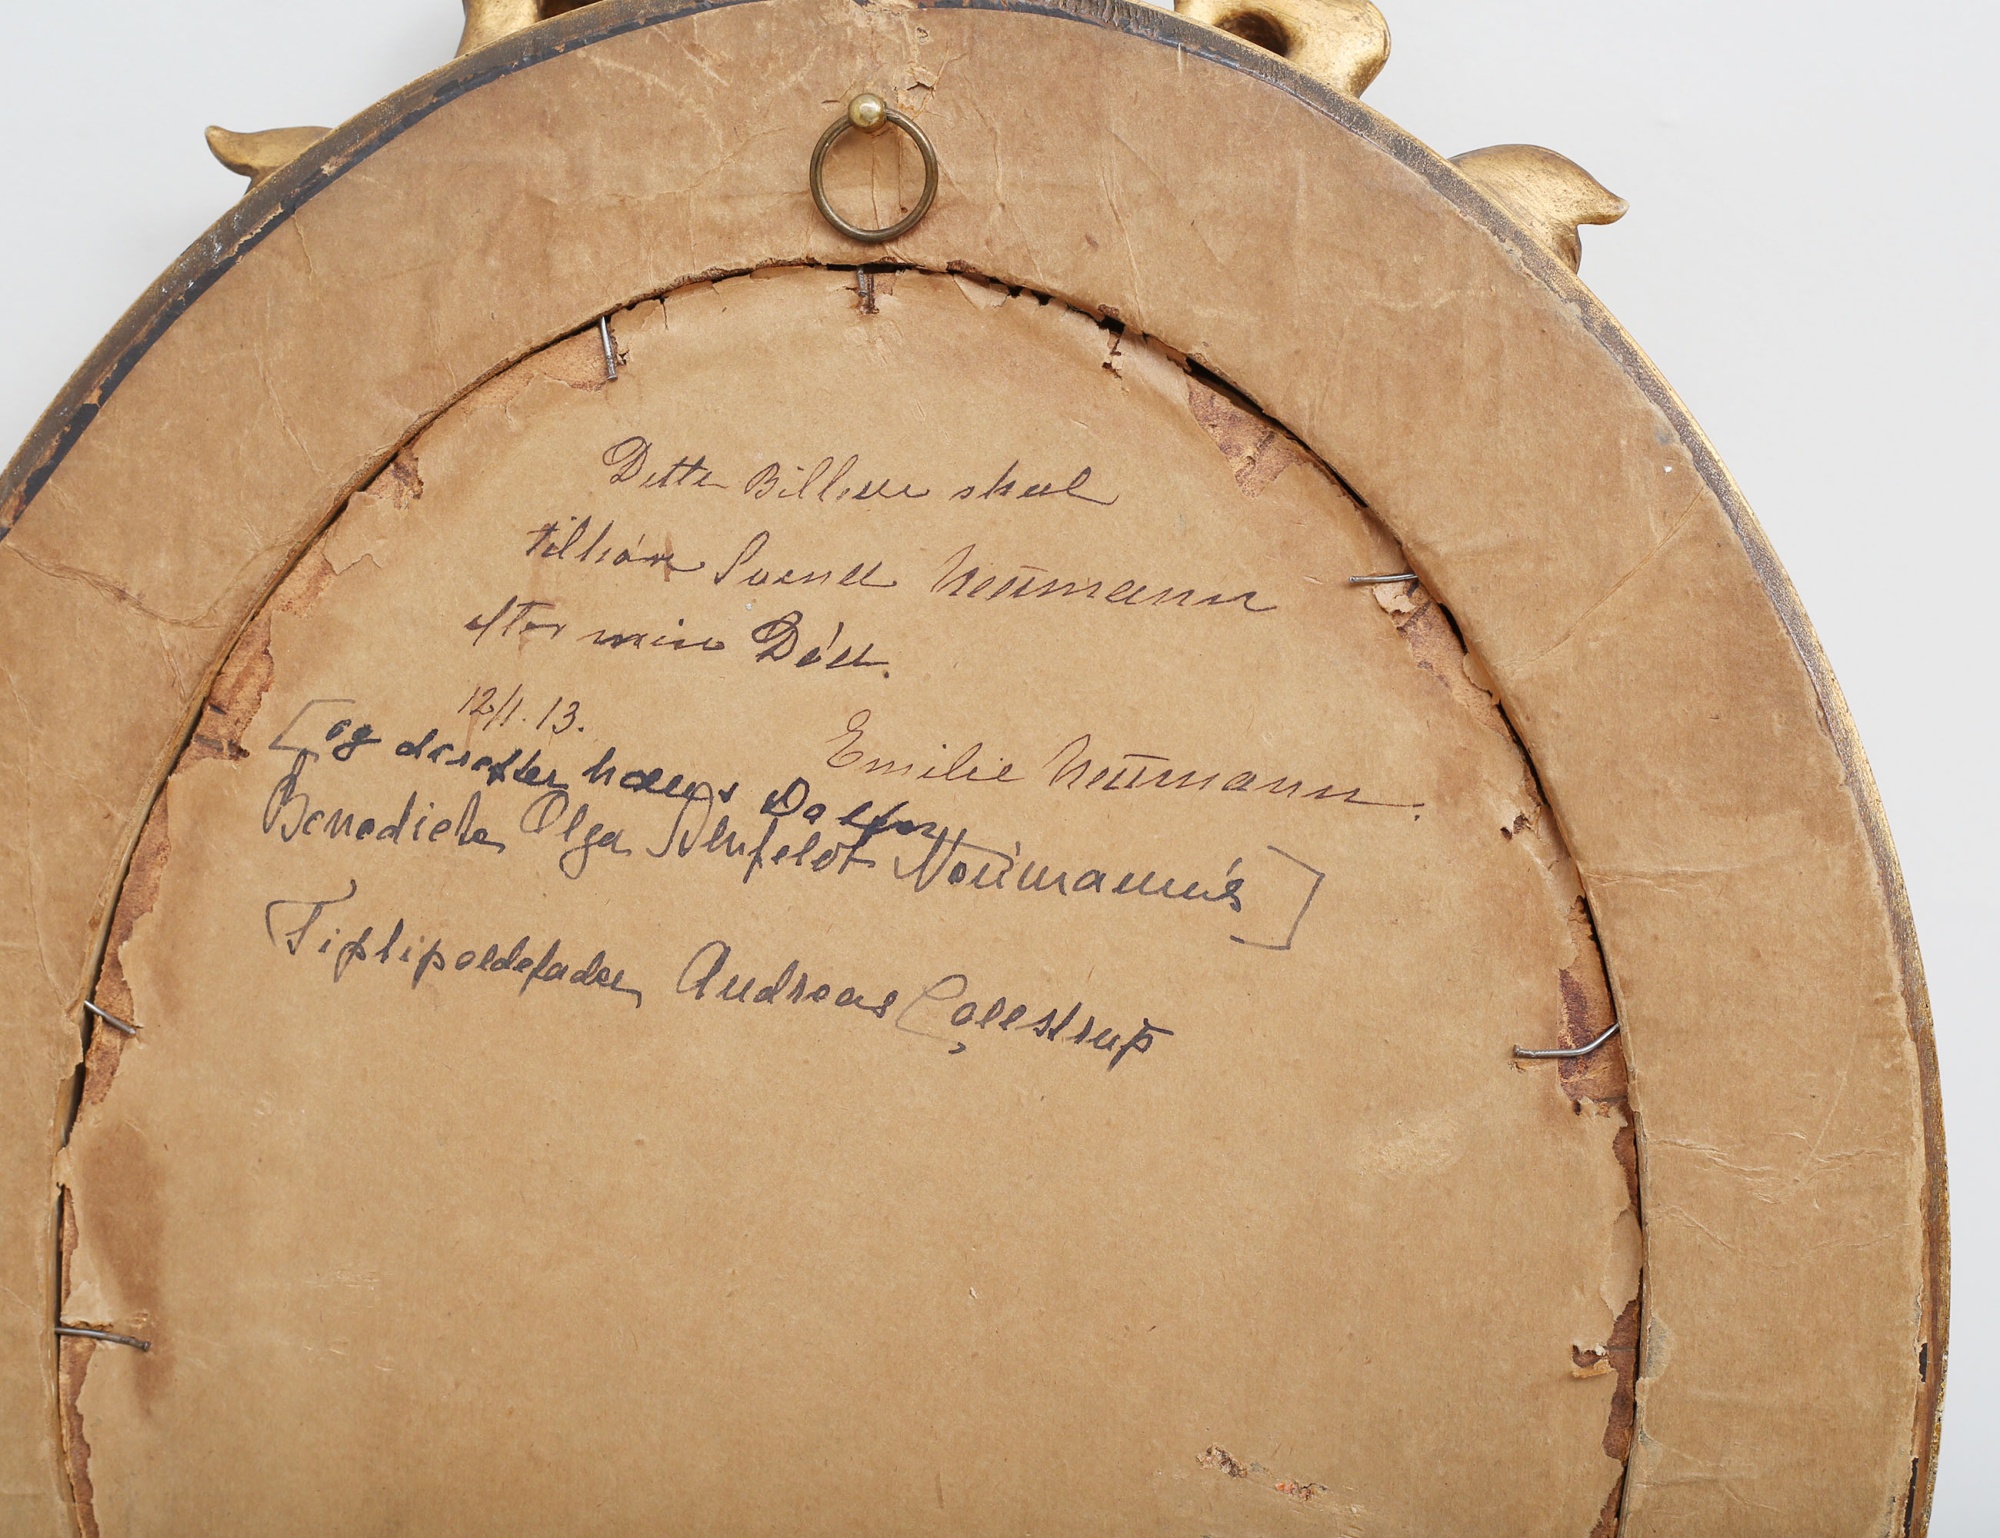 Dette Billede skal
tilhøre Svend Neŭmann
efter min Död.
12/1. 13.
Emilie Neŭmann.
[og derefter hans Datter
Benedicte Olga Ahlefeldt Neŭmann's]
Tiptipoldefader Andreas Collstrup